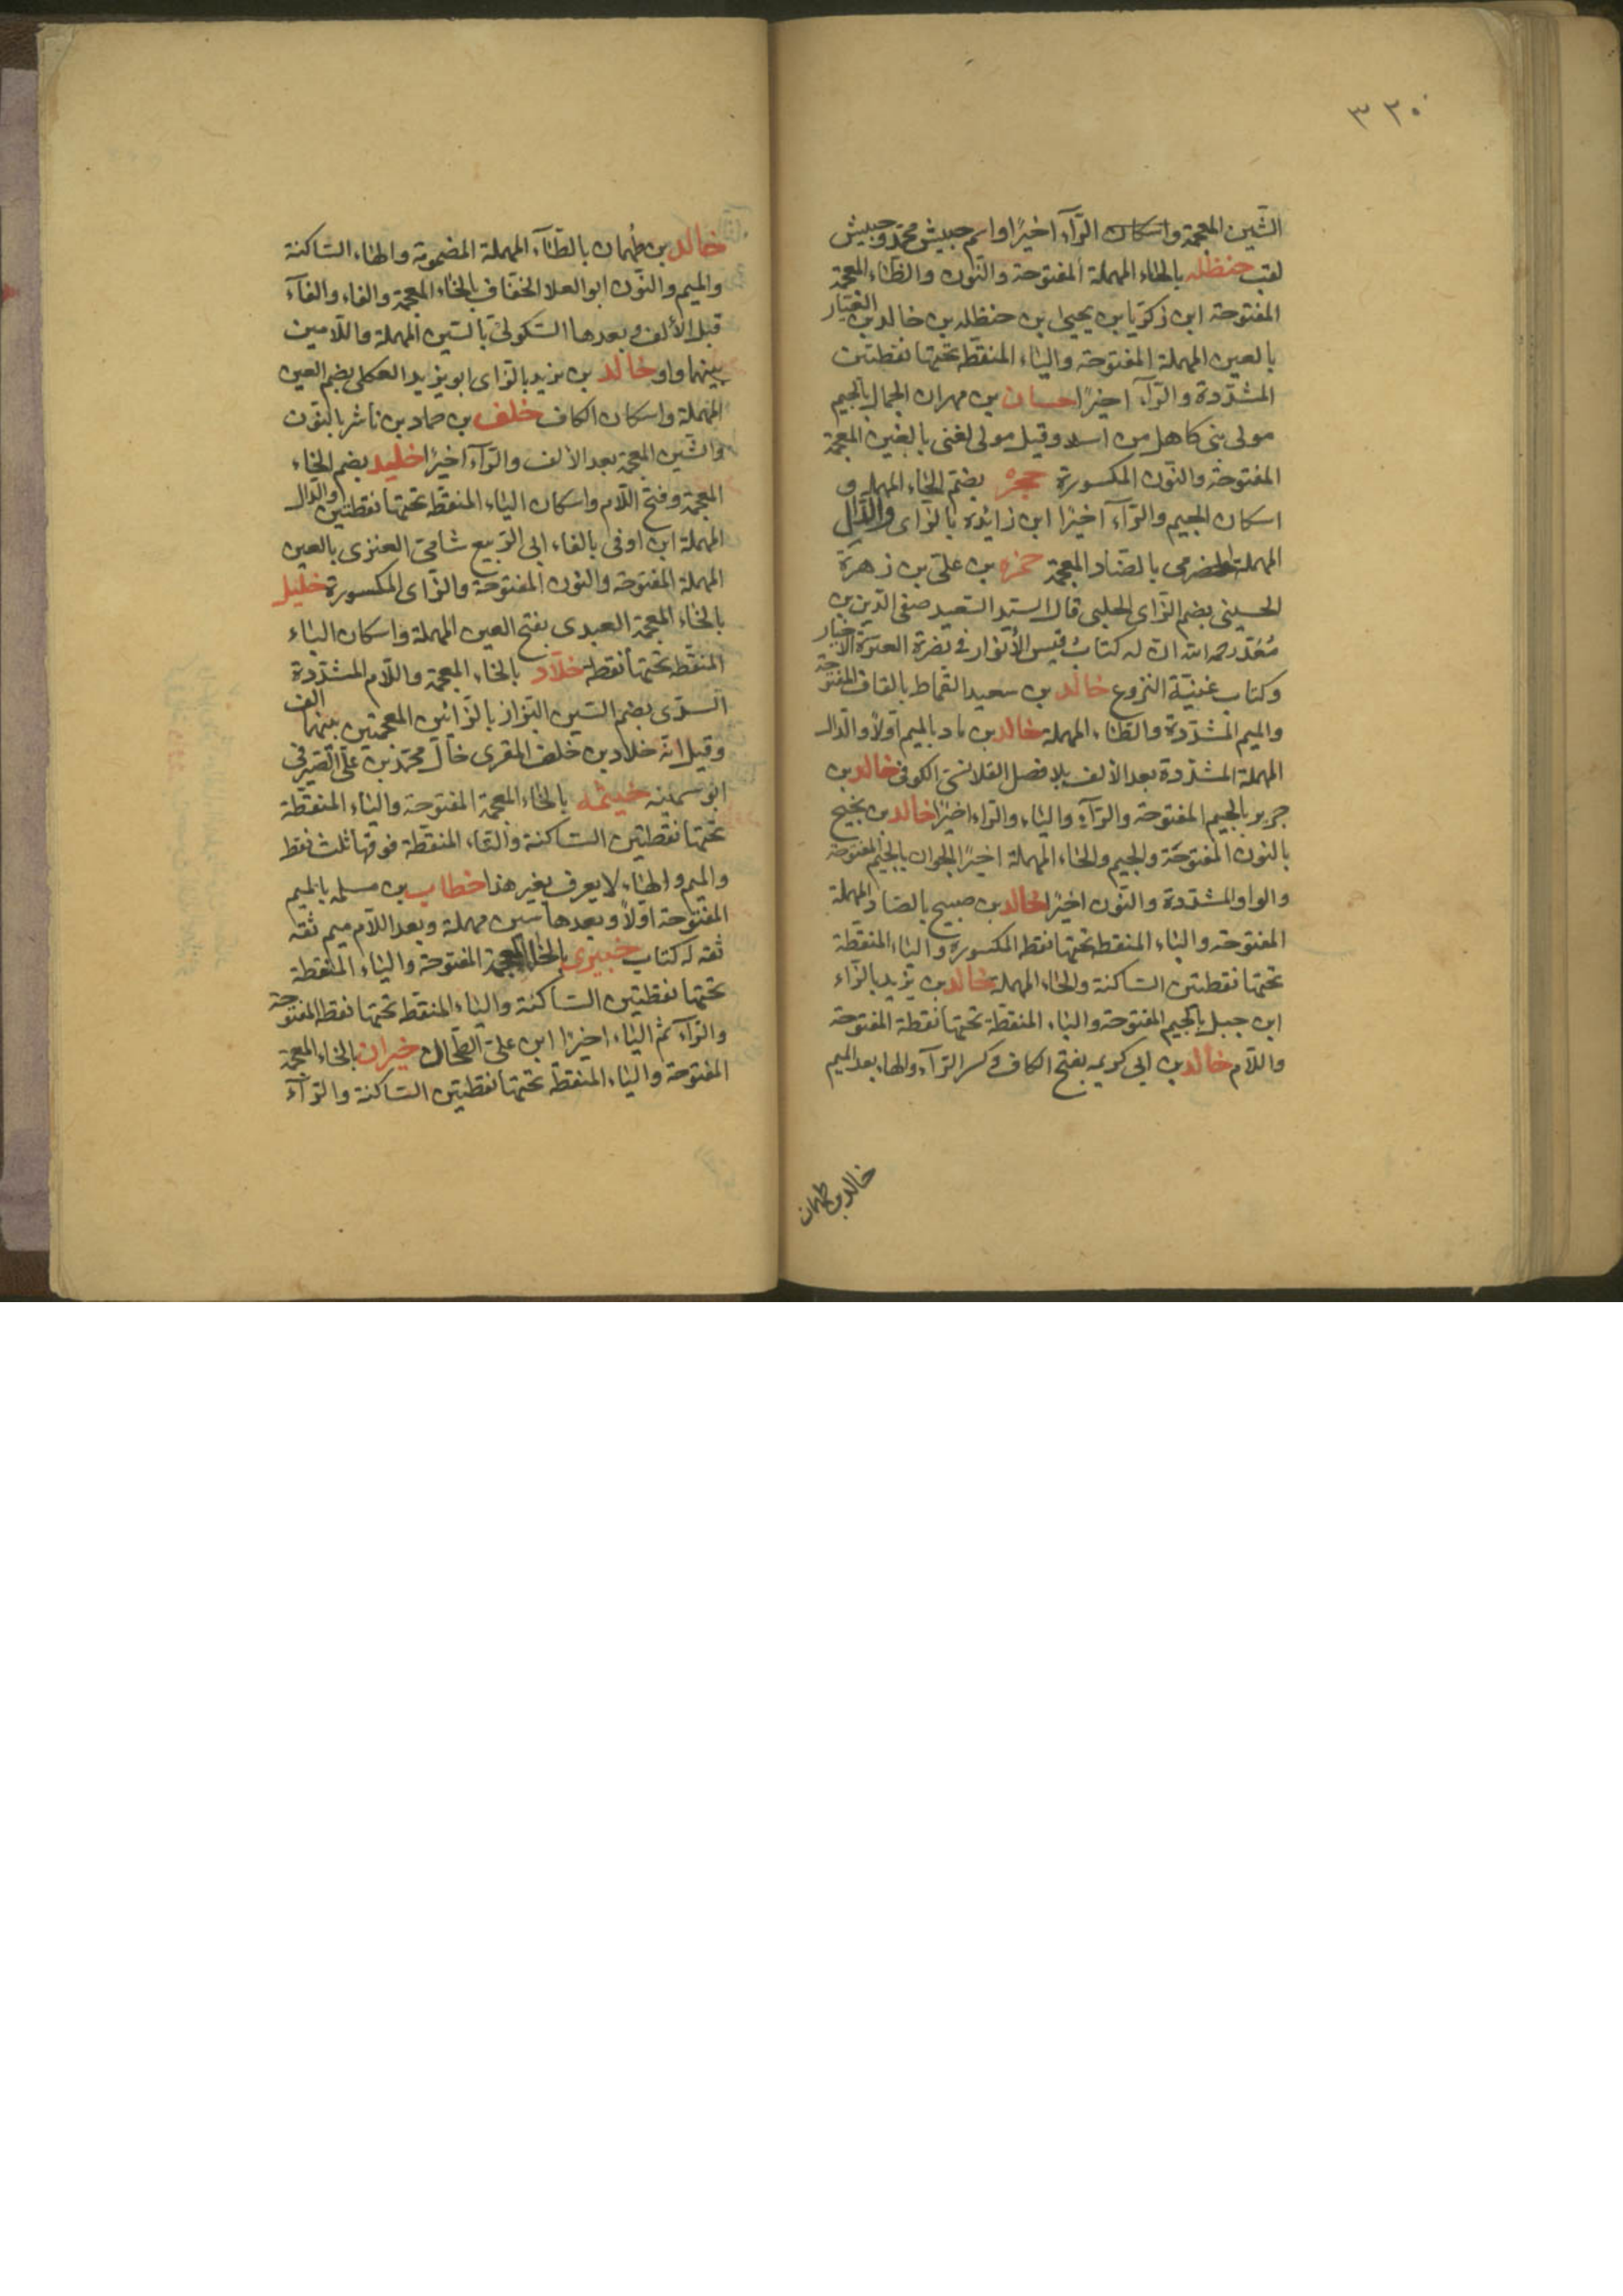 ٣٢٠
الشين المعجمة واسكان الرآء اخيرًا واسم حبيش محمد وحبيش
لقب حنظله بالحاء المهملة المفتوحة والنون والظاء المعجمة
المفتوحة ابن زكريا بن يحيى بن حنظله بن خالد بن العيار
بالعين المهملة المفتوحة والياء المنقطة تحتها نقطتين
المشددة والرآء اخيرًا حسان بن مهران الجمال بالجيم
مولى بنى كاهل من اسد وقيل مولى لغنى بالغين المعجمة
المفتوحة والنون المكسورة حجر بضم الحاء المهملة و
اسكان الجيم والرآء اخيرًا ابن زائدة بالزاى والدال
المهملة الحضرمى بالضاد المعجمة حمزه بن على بن زهرة
الحسينى بضم الزاى الحلبى قال السيد السعيد صفى الدين بن
مُعَد رحمه الله ان له كتابُ قبس الأنوار فى نصرة العترة الاخيار
وكتاب غنية النزوع خالد بن سعيد القماط بالقاف المفتوحة
والميم المشددة والطاء المهملة خالد بن ماد بالميم اولًا والدال
المهملة المشددة بعد الألف بلا فصل القلانسى الكوفى خالد بن
جرير بالجيم المفتوحة والرآء والياء والراء اخيرًا خالد بن نجيح
بالنون المفتوحة والجيم والحاء المهملة اخيرًا الجوان بالجيم المفتوحة
والواو المشددة والنون اخيرًا خالد بن صبيح بالصاد المهملة
المفتوحة والباء المنقطه تحتها نقطه المكسورة والياء المنقطة
تحتها نقطتين الساكنة والحاء المهملة خالد بن يزيد بالزآء
ابن جبل بالجيم المفتوحة والباء المنقطة تحتها نقطة المفتوحة
واللام خالد بن ابى كريمه بفتح الكاف وكسر الرآء والهاء بعد الميم
خالد بن طهمان
خالد بن طُهمان بالطآء المهملة المضمومة والهاء الساكنة
والميم والنون ابو العلا الخفاف بالخاء المعجمة والفاء والفآء
قبل الألف وبعدها السكولى بالسين المهملة واللامين
بينهما واو خالد بن يزيد بالزاى ابو يزيد العكلى بضم العين
المهملة واسكان الكاف خلف بن حماد بن ناشر بالنون
والشين المعجمة بعد الألف والرآء اخيرًا خليد بضم الخاء
المعجمة وفتح اللام واسكان الياء المنقطة تحتها نقطتين والدال
المهملة ابن اوفى بالفاء ابى الربيع شامى العنزى بالعين
المهملة المفتوحة والنون المفتوحة والزاى المكسورة خليل
بالخاء المعجمة العبدى بفتح العين المهملة واسكان الباء
المنقطه تحتها نقطه خلاد بالخاء المعجمة واللام المشددة
السدى بضم السين البزاز بالزائين المعجمتين بينهما الف
وقيل انه خلاد بن خلف المقرى خال محمد بن على الصيرفى
ابو سمينه خيثمه بالخاء المعجمة المفتوحة والياء المنقطة
تحتها نقطتين الساكنة والثاء المنقطة فوقها ثلث نقط
والميم والهاء لا يعرف بغير هذا خطاب بن مسلمه بالميم
المفتوحة اولًا وبعدها سين مهملة وبعد اللام ميم ثقه
ثقه له كتاب خيبرى بالخاء المعجمة المفتوحة والياء المنقطة
تحتها نقطتين الساكنة والباء المنقطه تحتها نقطه المفتوحة
والرآء ثم الياء اخيرًا ابن على الطحان خيران بالخاء المعجمة
المفتوحة والياء المنقطة تحتها نقطتين الساكنة والرآء